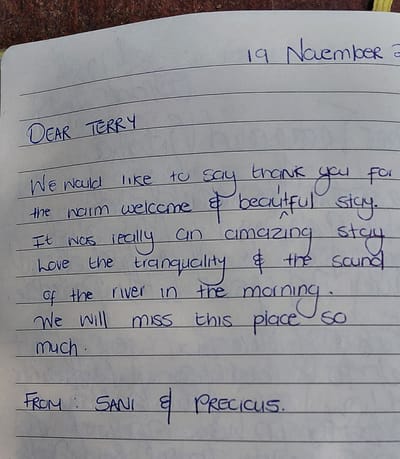 19 November 2
DEAR TERRY
We would like to say thank you for
the warm welcome & beautful stay.
It was really an amazing stay
Love the tranquality & the sound
of the river in the morning.
We will miss this place so
much.
FROM: SANI & PRECIOUS.